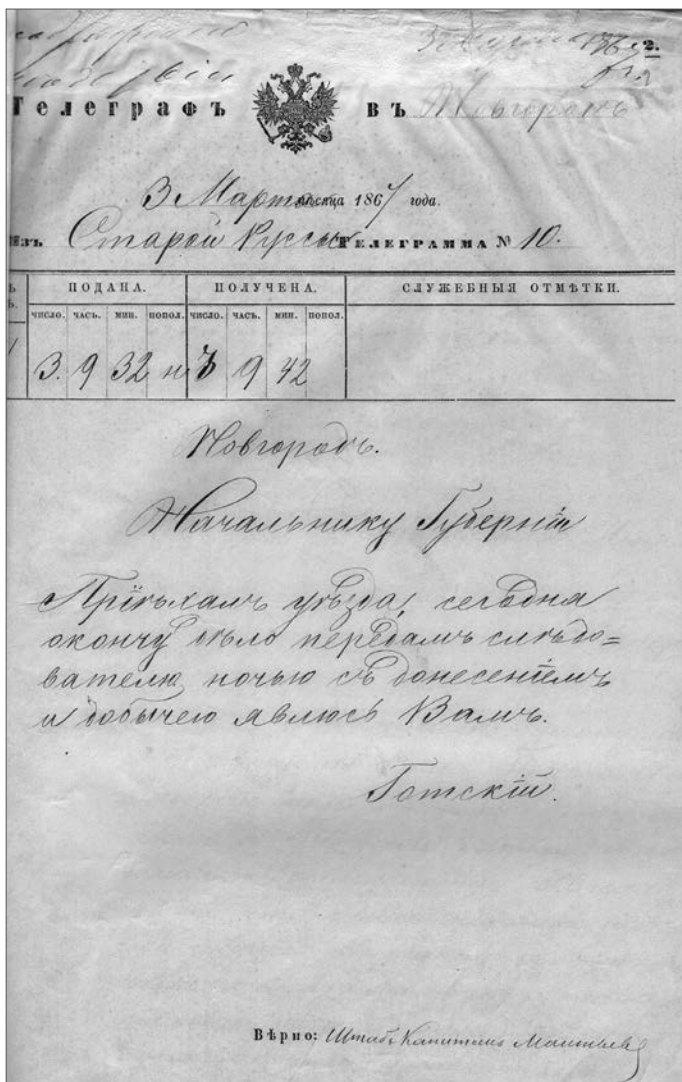 3 Марта 2.
Телеграфъ въ Новгородѣ
3 Марта мѣсяца 1867 года.
Изъ Старой Руссы Телеграмма № 10.
ПОДАНА. ПОЛУЧЕНА. СЛУЖЕБНЫЯ ОТМѢТКИ.
ЧИСЛО. ЧАСЪ. МИН. ПОПОЛ. ЧИСЛО. ЧАСЪ. МИН. ПОПОЛ.
3. 9 32 н 3 9 42
Новгородъ.
Начальнику Губерніи
Пріѣхалъ уѣзда, сегодня
окончу дѣло передамъ слѣдо=
вателю ночью съ донесеніемъ
и добычею явлюсь Вамъ.
Готскій.
Вѣрно: Штабсъ Капитанъ